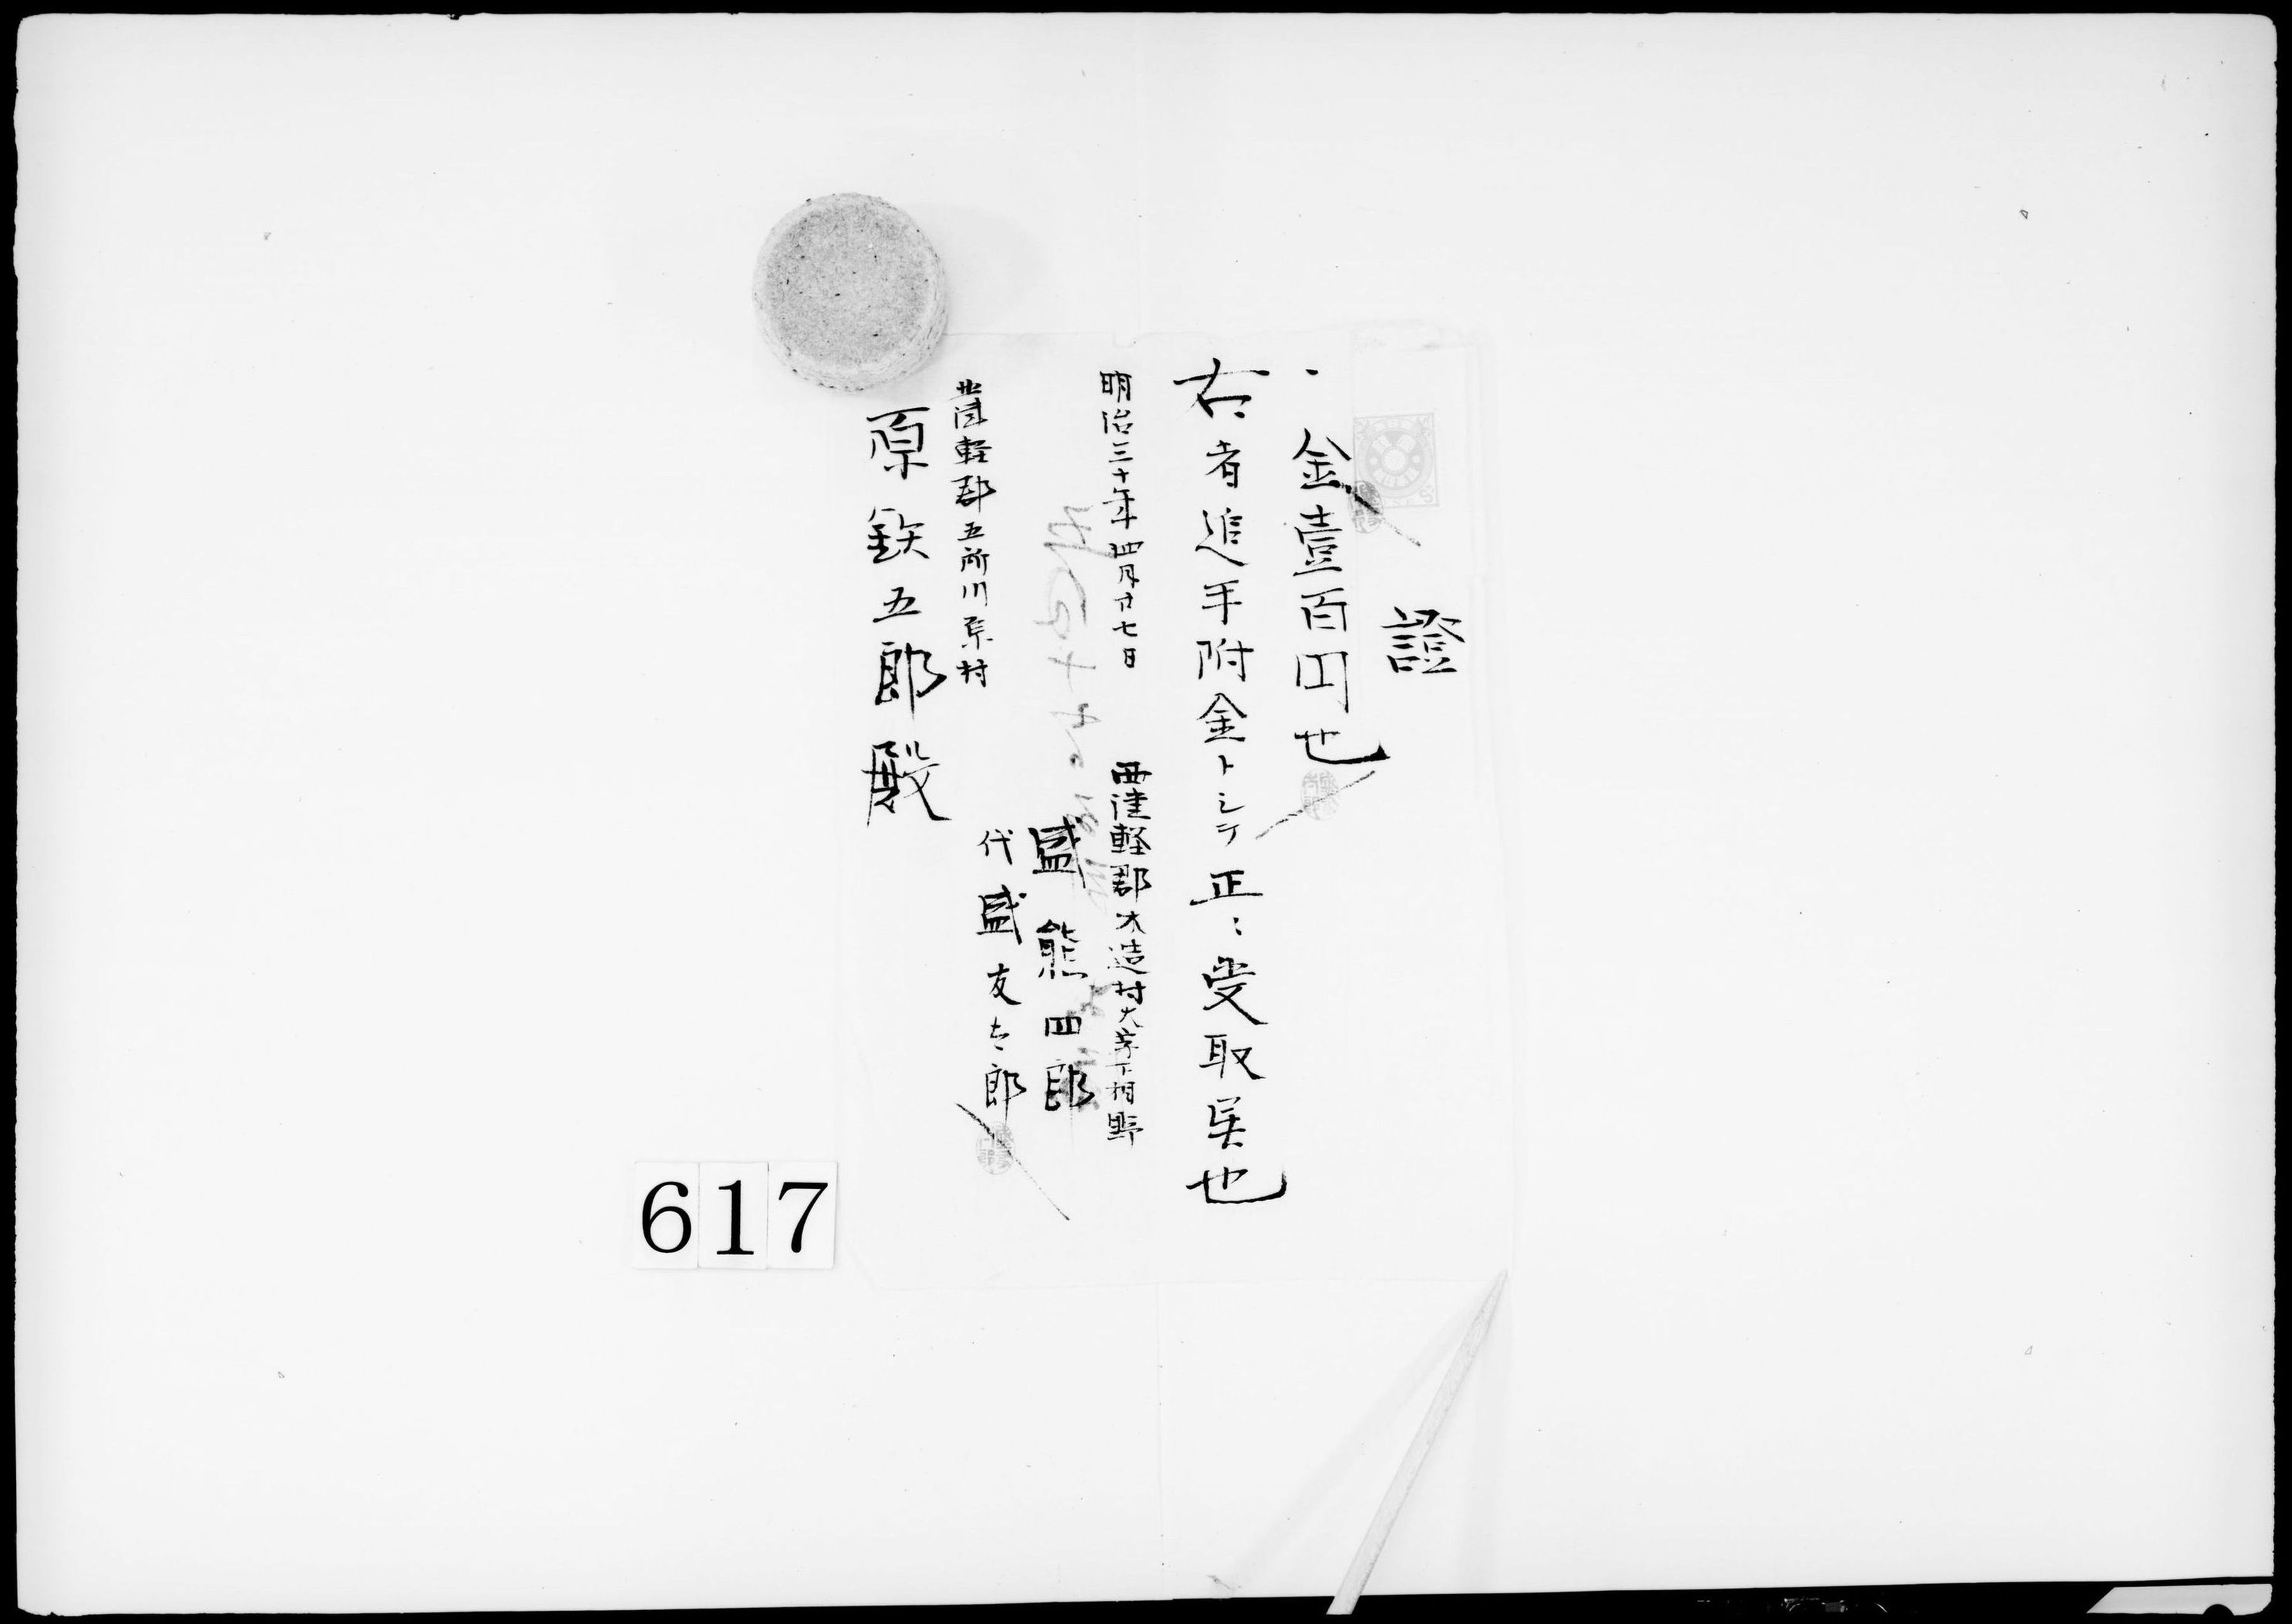 證
一金壹百円也
右者追手附金トシテ正ニ受取候也
明治三十年四月廿七日
西津軽郡木造村大字下相野
盛熊四郎
代盛友太郎
北津軽郡五所川原村
原鉄五郎殿
617